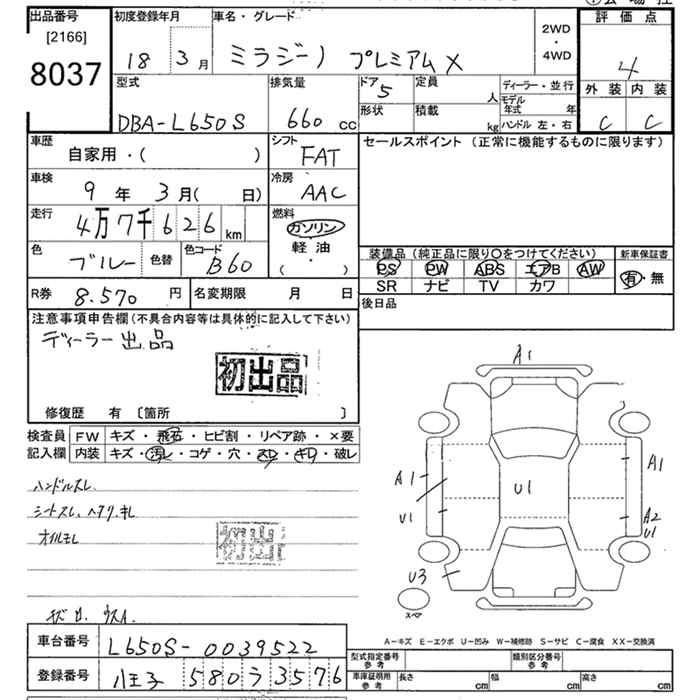 出品番号
[2166]
8037
初度登録年月
18 3月
車名・グレード
ミラジーノ プレミアムX
2WD
・
4WD
評価点
4
外装 内装
C C
型式
DBA-L650S
排気量
660 cc
ドア
5
形状
定員
人
積載
kg
ディーラー・並行
モデル年式 年
ハンドル 左・右
車歴
自家用・( )
シフト
FAT
車検
9年 3月( 日)
冷房
AAC
走行
4万7千626 km
燃料
ガソリン
・軽油・
( )
色
ブルー
色替
色コード
B60
R券
8.570 円
名変期限 月 日
セールスポイント(正常に機能するものに限ります)
装備品(純正品に限り○をつけてください)
PS PW ABS エアB AW
SR ナビ TV カワ
新車保証書
有・無
後日品
注意事項申告欄(不具合内容等は具体的に記入して下さい)
ディーラー出品
初出品
修復歴 有 〔箇所 〕
検査員記入欄
FW キズ・飛石・ヒビ割・リペア跡・×要
内装 キズ・汚レ・コゲ・穴・スレ・キレ・破レ
ハンドルスレ
シートスレ、ヘタリ、キレ
オイルモレ
A1
A1
U1
U1
A1
A2
U1
U3
スペア
A-キズ E-エクボ U-凹み W-補修跡 S-サビ C-腐食 XX-交換済
車台番号
L650S-0039522
登録番号
八王子 580 ラ 3576
型式指定番号
参考
類別区分番号
参考
車庫証明用
参考
長さ cm
幅 cm
高さ cm